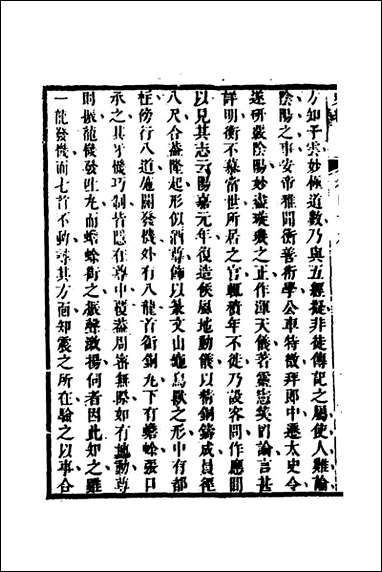 方知子雲妙極道數乃與五經擬非徒傳記之屬使人難論
陰陽之事安帝雅聞衡善術學公車特徵拜郎中遷太史令
遂研覈陰陽妙盡璇璣之正作渾天儀著靈憲筭罔論言甚
詳明衡不慕當世所居之官輒積年不徙乃設客問作應間
以見其志云陽嘉元年復造候風地動儀以精銅鑄成員徑
八尺合蓋隆起形似酒尊飾以篆文山龜鳥獸之形中有都
柱傍行八道施關發機外有八龍首銜銅丸下有蟾蜍張口
承之其牙機巧制皆隱在尊中覆蓋周密無際如有地動尊
則振龍機發吐丸而蟾蜍銜之振聲激揚伺者因此知之雖
一龍發機而七首不動尋其方面知震之所在驗之以事合